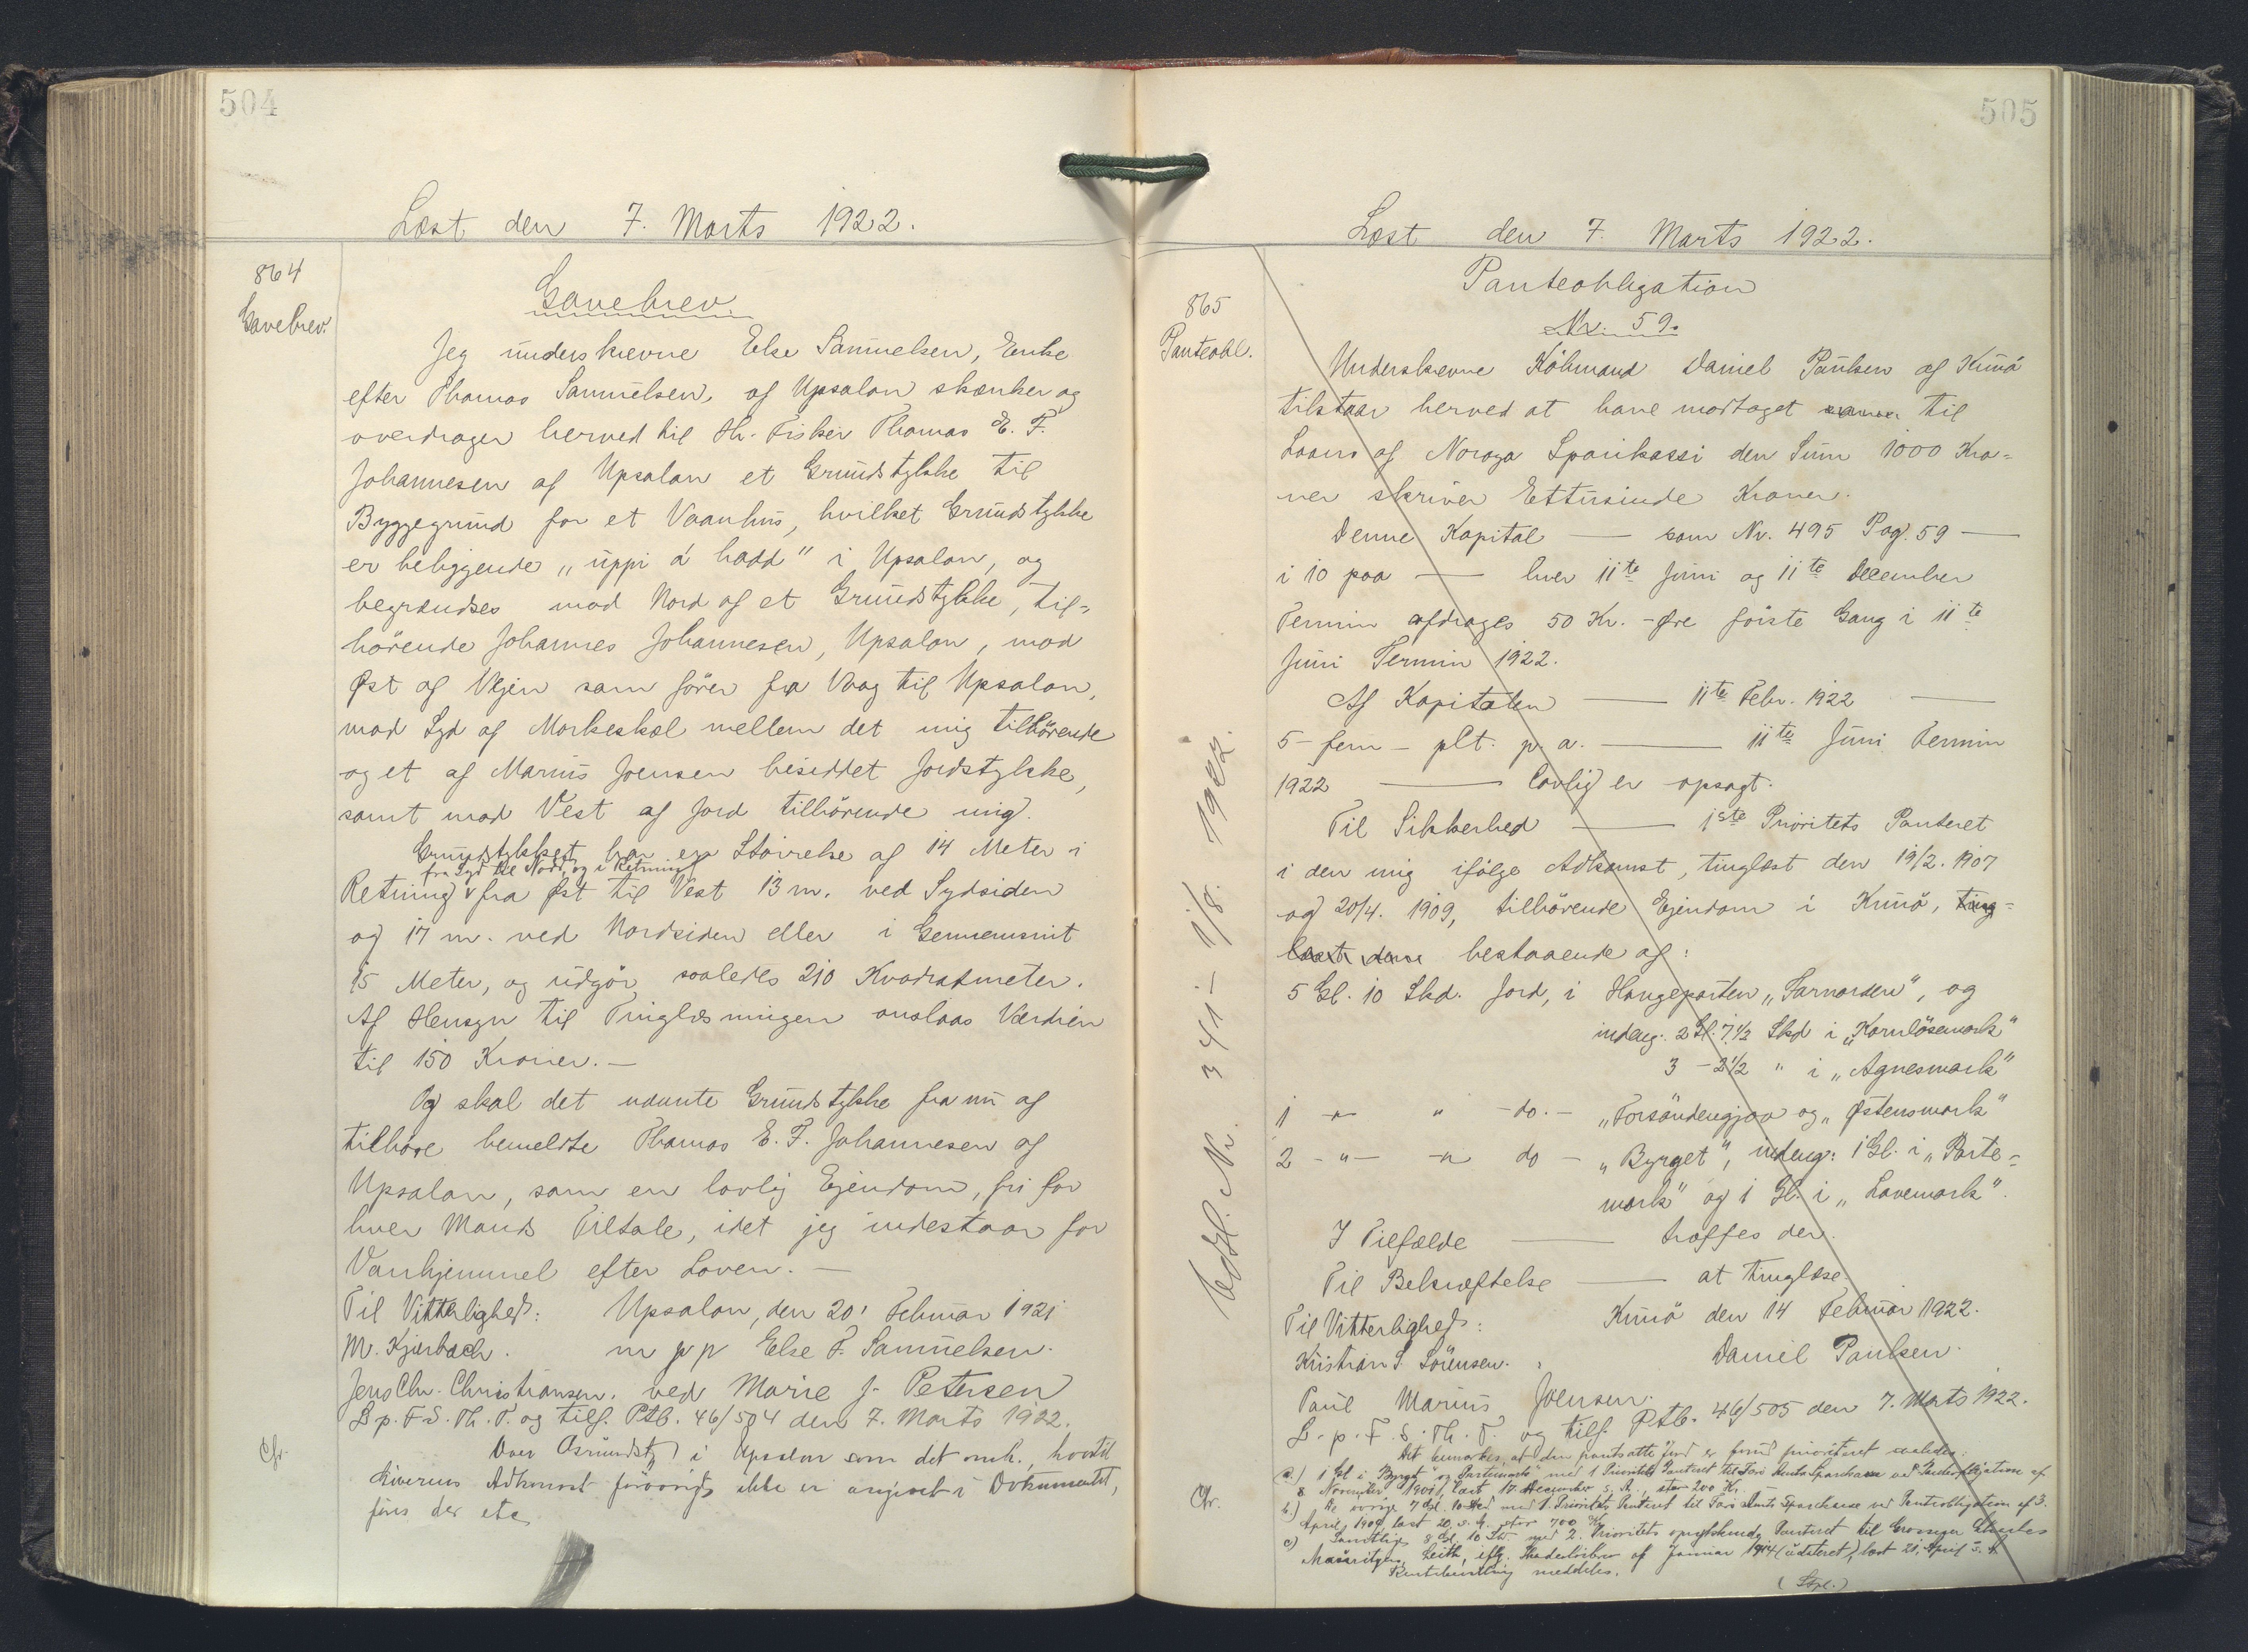 504
Læst den 7. Marts 1922.
864
Gavebrev.
Gavebrev.
Jeg underskrevne Else Samuelsen, Enke
efter Thomas Samuelsen, af Upsalon skænker og
overdrager herved til Hr. Fisker Thomas E. F.
Johannesen af Upsalon et Grundstykke til
Byggegrund for et Vaanhus, hvilket Grundstykke
er beliggende „uppi á hadd" i Upsalon, og
begrændses mod Nord af et Grundstykke, til-
hörende Johannes Johannesen, Upsalon, mod
Øst af Vejen som förer fra Vaag til Upsalon,
mod Syd af Markeskel mellem det mig tilhörende
og et af Marius Joensen besiddet Jordstykke,
samt mod Vest af Jord tilhörende mig.
Grundstykket har en Störrelse af 14 Meter i
fra Syd til Nord, og i Retning
Retning v fra Øst til Vest 13 m. ved Sydsiden
og 17 m. ved Nordsiden eller i Gennemsnit
15 Meter, og udgör saaledes 210 Kvadratmeter.
Af Hensyn til Tinglæsningen anslaas Værdien
til 150 Kroner.—
Og skal det nævnte Grundstykke fra nu af
tilhöre bemeldte Thomas E. F. Johannesen af
Upsalon, som en lovlig Ejendom, fri for
hver Mands Tiltale, idet jeg indestaar for
Vanhjemmel efter Loven.—
Til Vitterlighed: Upsalon, den 20' Februar 1921
M. Kjærbæch. m p p Else F. Samuelsen.
Jens Chr. Christiansen. ved Marie J. Petersen
L. p. F. S. Th. T. og tilf. Ptb. 46/504 den 7. Marts 1922.
Chr.
Over Grundst. i Upsalon som det omh., hvortil
Giverens Adkomst forövrigt ikke er angivet i Dokumentet,
fins der etc
505
Læst den 7. Marts 1922.
865
Panteobl.
Panteobligation
Nr. 59.
Underskrevne Köbmand Daniel Paulsen af Kunö
tilstaar herved at have modtaget til
Laans af Noroya Sparikassi den Sum 1000 Kro-
ner skriver Ettusinde Kroner.
Denne Kapital — som Nr. 495 Pag. 59 —
i 10 paa — hver 11te Juni og 11te December
Termin afdrages 50 Kr. - Øre förste Gang i 11te
Juni Termin 1922.
Af Kapitalen — 11te Febr. 1922 —
5 - fem - pCt. p. a. — 11te Juni Termin
1922 — lovlig er opsagt.
Til Sikkerhed — 1ste Prioritets Panteret
i den mig ifölge Adkomst, tinglæst den 19/2. 1907
og 20/4. 1909, tilhörende Ejendom i Kunö, ting-
læst den bestaaende af:
5 Gl. 10 Skd. Jord, i Haugeparten „Sarnarden", og
indeg. 2 Gl. 7 1/2 Skd i „Kornlösemark"
3 - 2 1/2 " i „Agnesmark"
1 - " - " - do. - „Forsöndengjov og „Østensmark"
2 - " - " do - „Byrget", indeg: 1 Gl. i „Parte-
mark" og 1 Gl. i „Lavemark".
I Tilfælde — træffes der.
Til Bekræftelse — at tinglæse.
Til Vitterlighed: Kunö den 14 Februar 1922.
Kristian S. Sörensen. Daniel Paulsen.
Paul Marius Joensen.
L. p. F. S. Th. T. og tilf. Ptb. 46/505 den 7. Marts 1922.
Udsl. Nr. 341 - 1/8. 1922.
Chr.
Det bemærkes, at den pantsatte Jord er forud prioriteret saaledes:
a.) 1 Gl i Byrget og Partemark med 1 Prioritets Panteret til Færö Amts Sparekasse ved Panteobligation af
8 November 1901, læst 17 December s. A., stor 200 Kr.
b.) de övrige 7 Gl. 10 Skd med 1. Prioritets Panteret til Færö Amts Sparekasse ved Panteobligation af 3.
April 1909 læst 20, s. A. stor 700 Kr.
c) Samtlige 8 Gl. 10 Skd med 2. Prioritets opryk­kende Panteret til Grosserer Charles
Leith, iflg. Skadeslösbrev af Januar 1914 (udateret), læst 21. April s. A.
Rentebevilling meddeles.
(Stpl.)